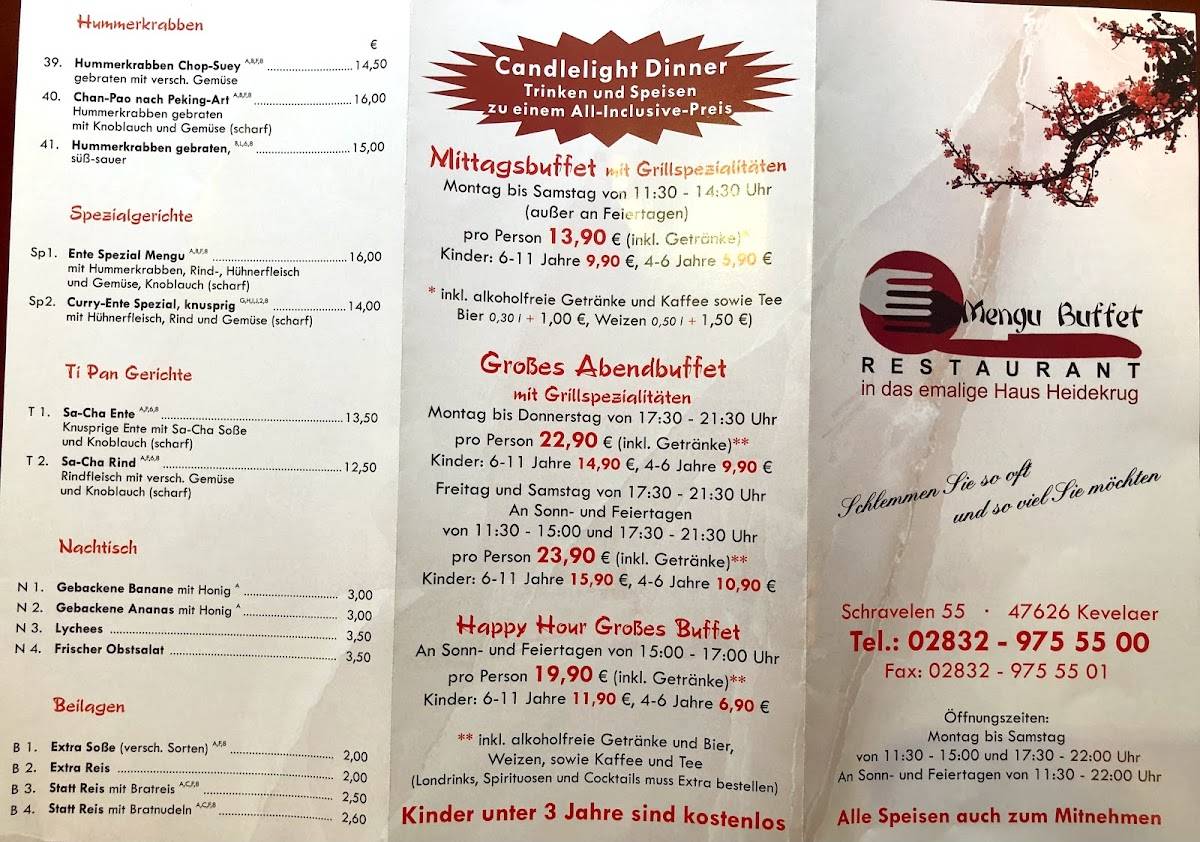 Hummerkrabben
€
39. Hummerkrabben Chop-Suey A,8,F,8 ..... 14,50
gebraten mit versch. Gemüse
40. Chan-Pao nach Peking-Art A,8,F,8 ..... 16,00
Hummerkrabben gebraten
mit Knoblauch und Gemüse (scharf)
41. Hummerkrabben gebraten, ..... 15,00
süß-sauer
Spezialgerichte
Sp1. Ente Spezial Mengu A,8,F,8 ..... 16,00
mit Hummerkrabben, Rind-, Hühnerfleisch
und Gemüse, Knoblauch (scharf)
Sp2. Curry-Ente Spezial, knusprig ..... 14,00
mit Hühnerfleisch, Rind und Gemüse (scharf)
Ti Pan Gerichte
T 1. Sa-Cha Ente A,F,6,8 ..... 13,50
Knusprige Ente mit Sa-Cha Soße
und Knoblauch (scharf)
T 2. Sa-Cha Rind A,F,6,8 ..... 12,50
Rindfleisch mit versch. Gemüse
und Knoblauch (scharf)
Nachtisch
N 1. Gebackene Banane mit Honig A ..... 3,00
N 2. Gebackene Ananas mit Honig A ..... 3,00
N 3. Lychees ..... 3,50
N 4. Frischer Obstsalat ..... 3,50
Beilagen
B 1. Extra Soße (versch. Sorten) A,F,8 ..... 2,00
B 2. Extra Reis ..... 2,00
B 3. Statt Reis mit Bratreis A,C,F,8 ..... 2,50
B 4. Statt Reis mit Bratnudeln A,C,F,8 ..... 2,60
Candlelight Dinner
Trinken und Speisen
zu einem All-Inclusive-Preis
Mittagsbuffet mit Grillspezialitäten
Montag bis Samstag von 11:30 - 14:30 Uhr
(außer an Feiertagen)
pro Person 13,90 € (inkl. Getränke)*
Kinder: 6-11 Jahre 9,90 €, 4-6 Jahre 5,90 €
* inkl. alkoholfreie Getränke und Kaffee sowie Tee
Bier 0,30 l + 1,00 €, Weizen 0,50 l + 1,50 €)
Großes Abendbuffet
mit Grillspezialitäten
Montag bis Donnerstag von 17:30 - 21:30 Uhr
pro Person 22,90 € (inkl. Getränke)**
Kinder: 6-11 Jahre 14,90 €, 4-6 Jahre 9,90 €
Freitag und Samstag von 17:30 - 21:30 Uhr
An Sonn- und Feiertagen
von 11:30 - 15:00 und 17:30 - 21:30 Uhr
pro Person 23,90 € (inkl. Getränke)**
Kinder: 6-11 Jahre 15,90 €, 4-6 Jahre 10,90 €
Happy Hour Großes Buffet
An Sonn- und Feiertagen von 15:00 - 17:00 Uhr
pro Person 19,90 € (inkl. Getränke)**
Kinder: 6-11 Jahre 11,90 €, 4-6 Jahre 6,90 €
** inkl. alkoholfreie Getränke und Bier,
Weizen, sowie Kaffee und Tee
(Londrinks, Spirituosen und Cocktails muss Extra bestellen)
Kinder unter 3 Jahre sind kostenlos
Mengu Buffet
RESTAURANT
in das emalige Haus Heidekrug
Schlemmen Sie so oft
und so viel Sie möchten
Schravelen 55 · 47626 Kevelaer
Tel.: 02832 - 975 55 00
Fax: 02832 - 975 55 01
Öffnungszeiten:
Montag bis Samstag
von 11:30 - 15:00 und 17:30 - 22:00 Uhr
An Sonn- und Feiertagen von 11:30 - 22:00 Uhr
Alle Speisen auch zum Mitnehmen